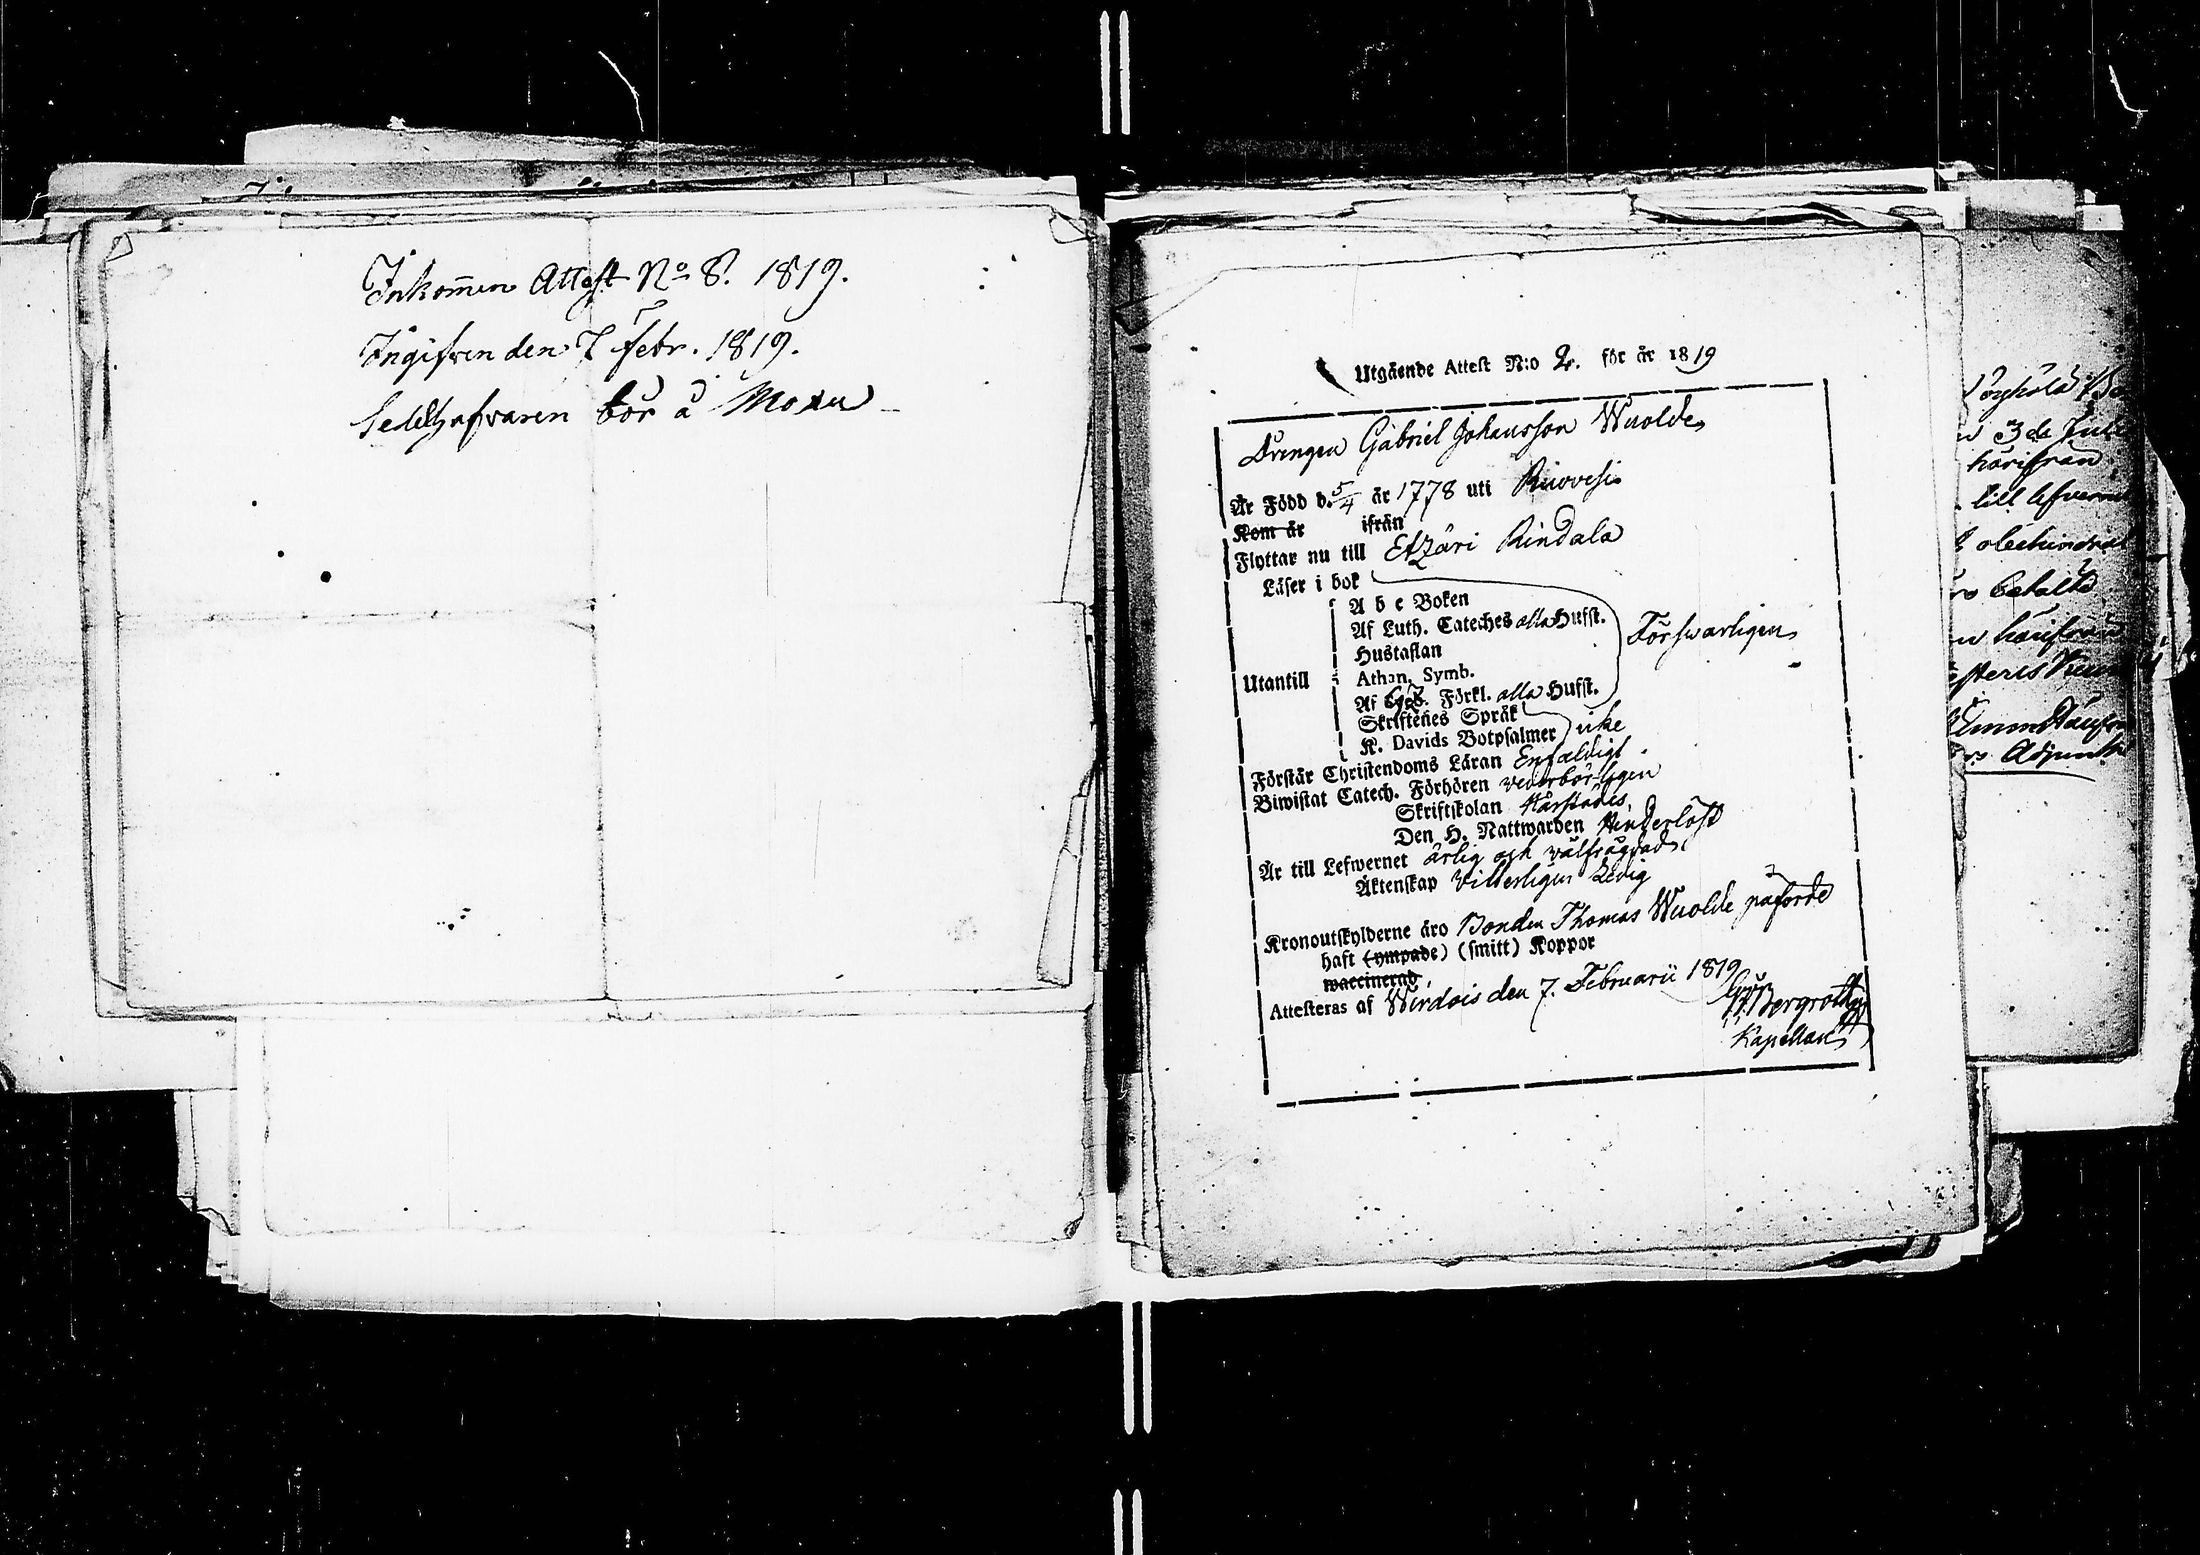 Inkommen Attest No 8. 1819.
Ingifven den 7 Febr. 1819.
Sedelhafvaren bor å Moxu
Utgående Attest N:o 2. för år 1819
Drengen Gabriel Johansson Wuolde
Är Född d. 5/4 år 1778 uti Ruovesi
Kom år ifrån
Flyttar nu till Etzäri Rindala
Läser i bok
A b c Boken
Af Luth. Cateches alla Hufst.
Hustaflan
Försvarligen
Utantill
Athan. Symb.
Af Förkl. alla Hufst.
Skriftenes Språk
K. Davids Botpsalmer icke
Förstår Christendoms Läran Enfaldigt
Biwistat Catech. Förhören vederbörligen
Skriftskolan härstädes
Den H. Nattwarden Hinderlöst
Är till Lefwernet ärlig och välfrägdad
Äktenskap Vitterligen Ledig
Kronoutskylderne äro Bonden Thomas Wuolde påförde
haft (ympade) (smitt) Koppor
waccinerad
Attesteras af Wirdois den 7. Februarii 1819
Bergroth
Kapellan
3de Julii
härifrån
till lefvernet